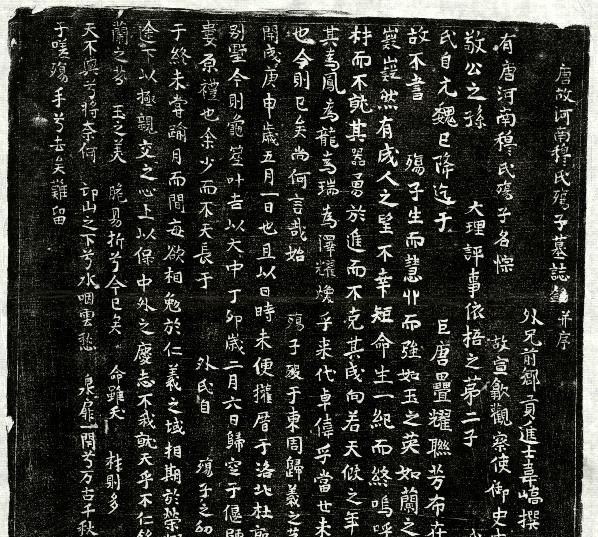 唐故河南穆氏殤子墓誌銘并序
外兄前鄉貢進士韋嶠撰
有唐河南穆氏殤子名悰 故宣歙觀察使御史
敬公之孫 大理評事依梧之第二子
氏自元魏已降迄于 巨唐疊耀聯芳布在
故不書 殤子生而慧丱而強如玉之英如蘭之
嶷嶷然有成人之望不幸短命生一紀而終嗚呼
材而不就其器勇於進而不克其成向若天假之年
其為鳳為龍為瑞為澤耀煥乎來代卓偉乎當世未
也今則已矣尚何言哉始 殤子歿于東周歸義之
開成庚申歲五月一日也且以日時未便攢厝于洛北杜
別墅今則龜筮叶吉以大中丁卯歲二月六日歸窆于偃師
婁原禮也余少而不天長于 外氏自 殤子之幼
于終未嘗踰月而間每欲相勉於仁義之域相期於榮
途下以極親交之心上以保中外之慶志不我就天乎不仁銘
蘭之芳 玉之美 脆易折兮今已矣 命雖夭 桂則多
天不與兮將奈何 邙山之下兮水咽雲愁 泉扉一閉兮万古千秋
于嗟殤子兮去矣難留